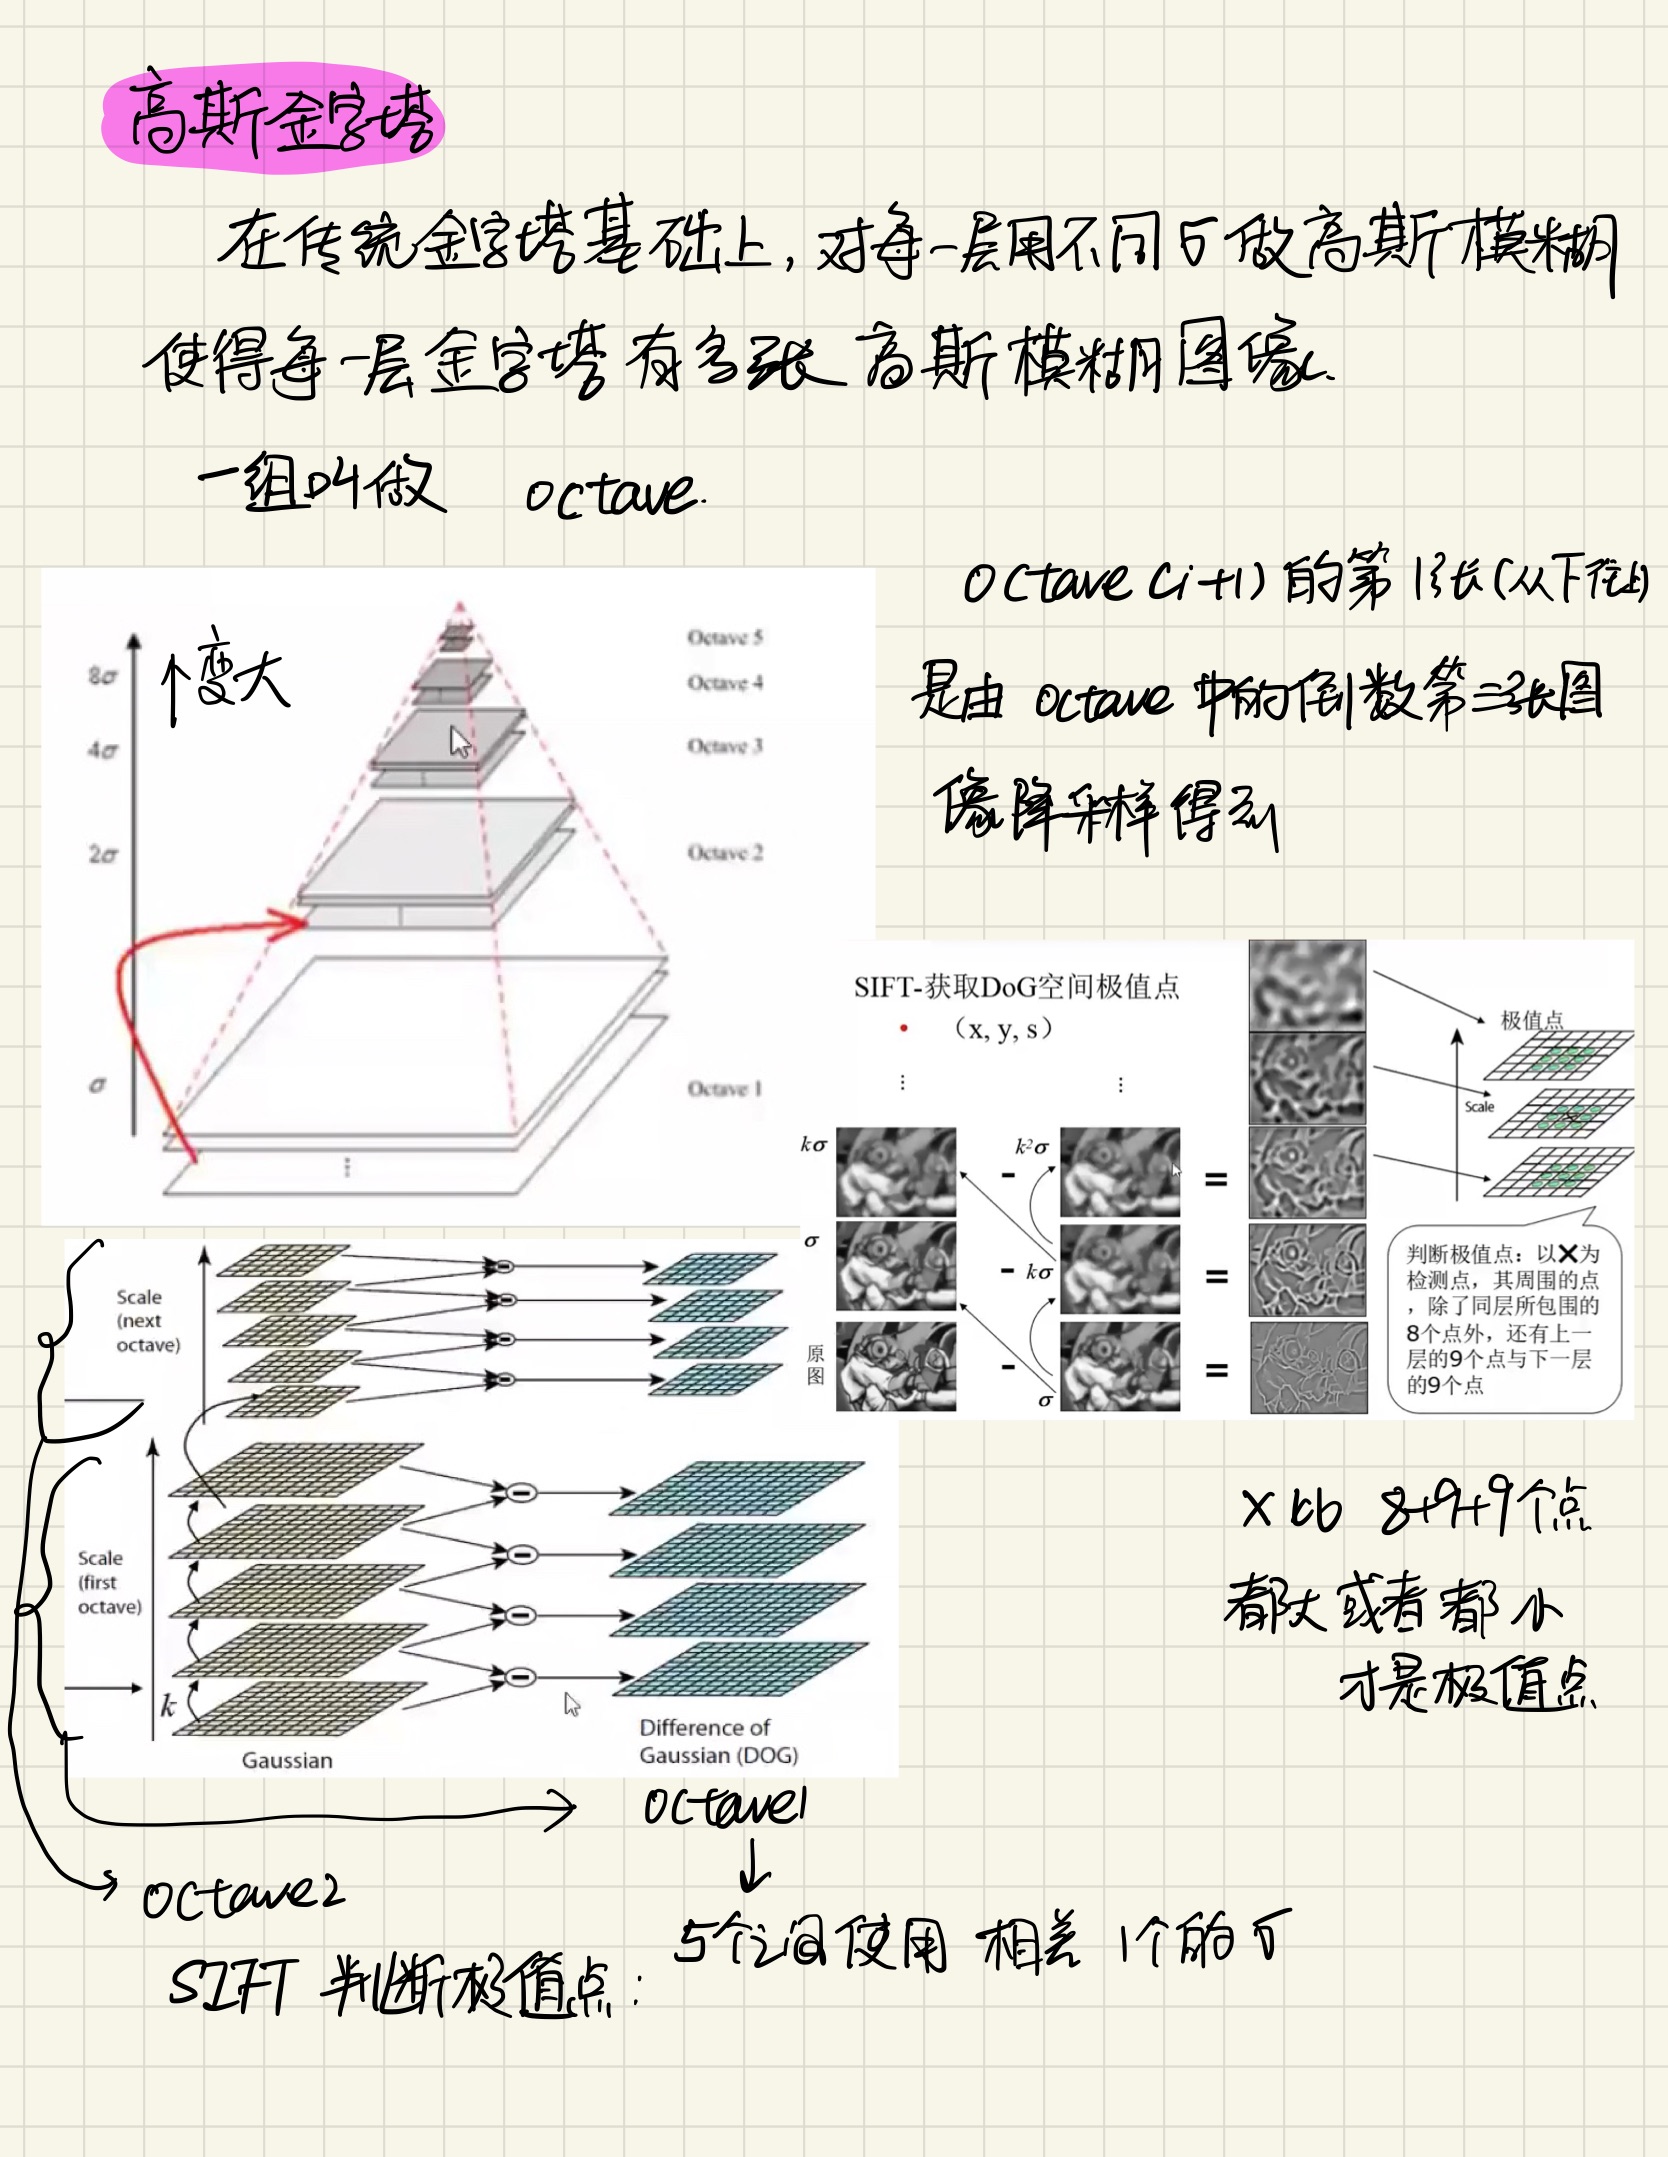 高斯金字塔
在传统金字塔基础上，对每一层用不同σ做高斯模糊
使得每一层金字塔有多张高斯模糊图像.
一组叫做 octave.
octave (i+1) 的第1张(从下往上)
是由 octave 中的倒数第三张图
像降采样得到
8σ
↑变大
4σ
2σ
σ
Octave 5
Octave 4
Octave 3
Octave 2
Octave 1
SIFT-获取DoG空间极值点
（x, y, s）
极值点
Scale
kσ
- k²σ =
σ
- kσ =
原图
- σ =
判断极值点：以✖为
检测点，其周围的点
，除了同层所包围的
8个点外，还有上一
层的9个点与下一层
的9个点
Scale
(next
octave)
Scale
(first
octave)
k
Gaussian
Difference of
Gaussian (DOG)
x 比 8+9+9个点
都大或者都小
才是极值点
octave1
↓
octave2
5个之间使用 相差 1个的σ
SIFT 判断极值点：